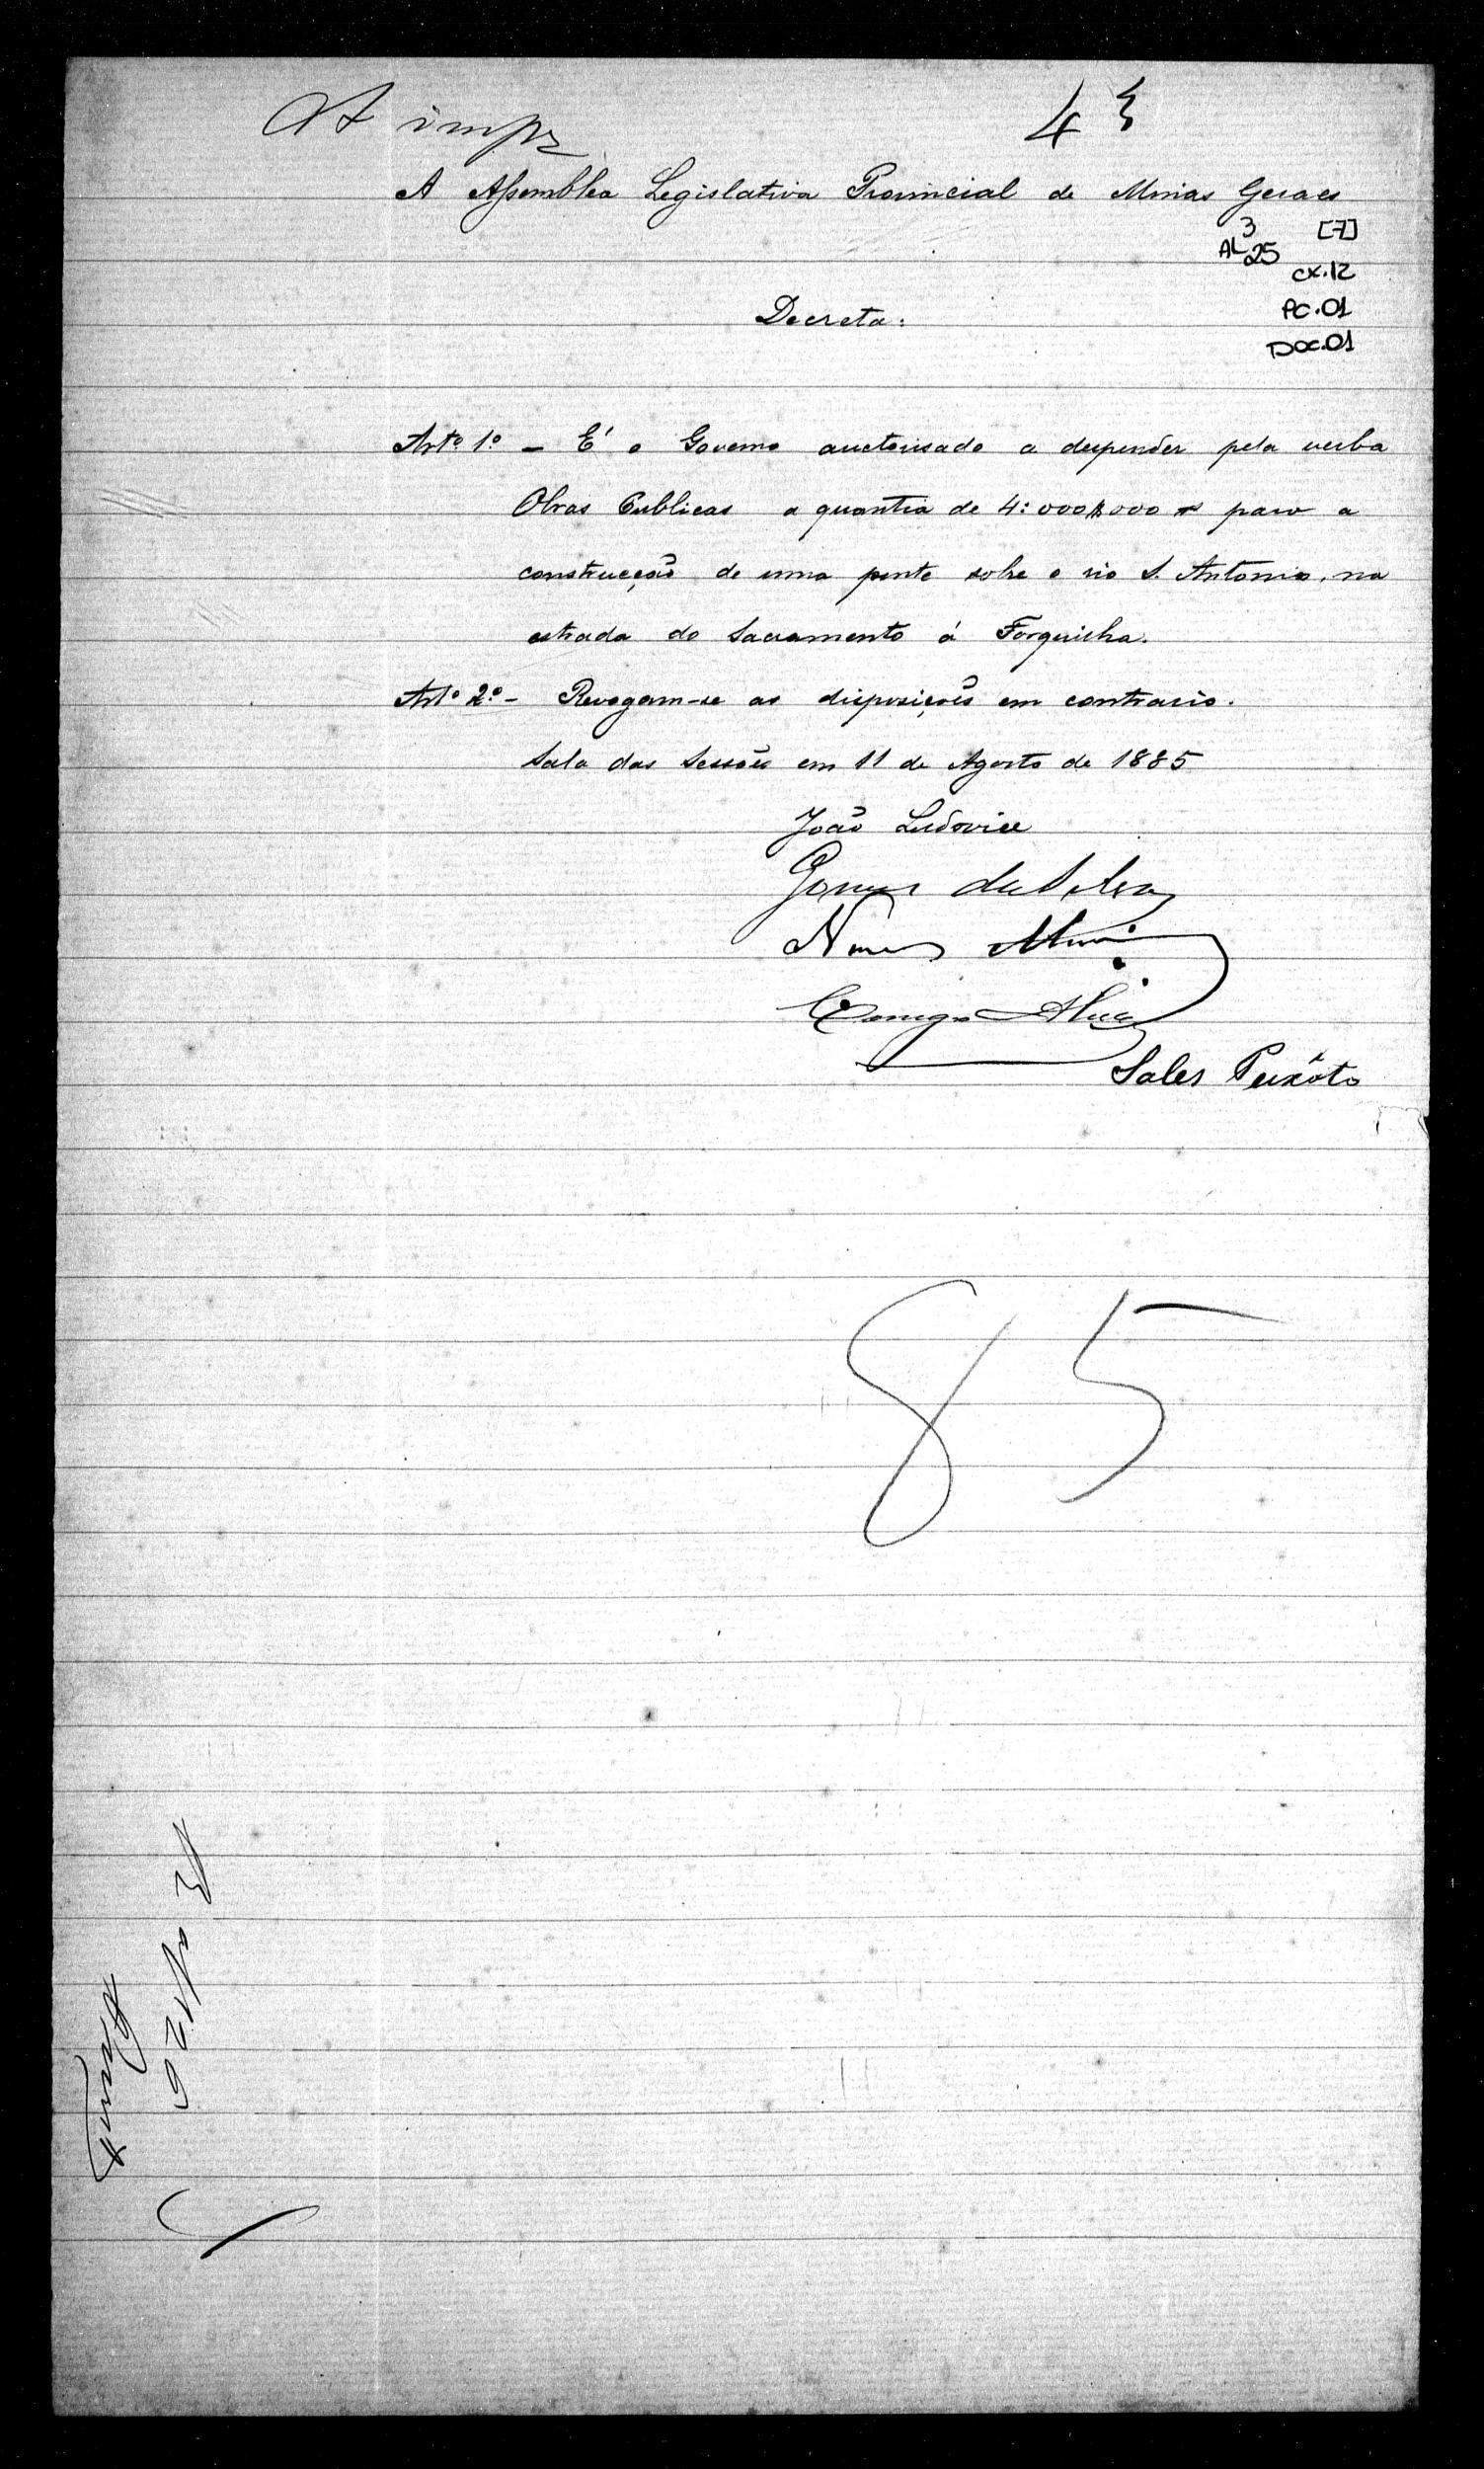 A impr
43
A Assemblea Legislativa Provincial de Minas Geraes
3 [7]
AL 25
CX.12
PC.01
DOC.01
Decreta:
Artº 1º – É o Governo auctorisado a despender pela verba
Obras Publicas a quantia de 4:000$000 rs para a
construcção de uma ponte sobre o rio S. Antonio, na
estrada do Sacramento á Forquilha.
Artº 2º – Revogam-se as disposições em contrario.
Sala das Sessões em 11 de Agosto de 1885
João Ludovice
Gomes da Silva
Conego
Sales Peixôto
85